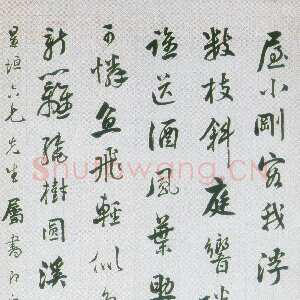 屋小剛容我
数枝斜庭響
誰送酒風葉
可憐魚飛輕似
新羅繞樹圓溪
星垣六兄先生屬書即
Shufawang.CN